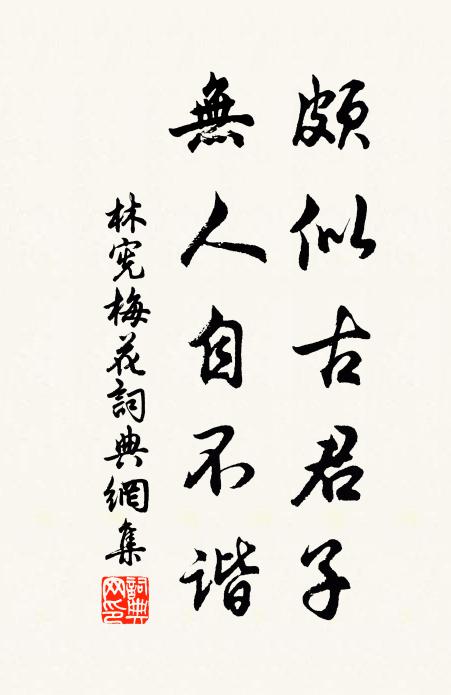 頗似古君子
無人自不谐
林宪梅花詞典網集
詞典網印